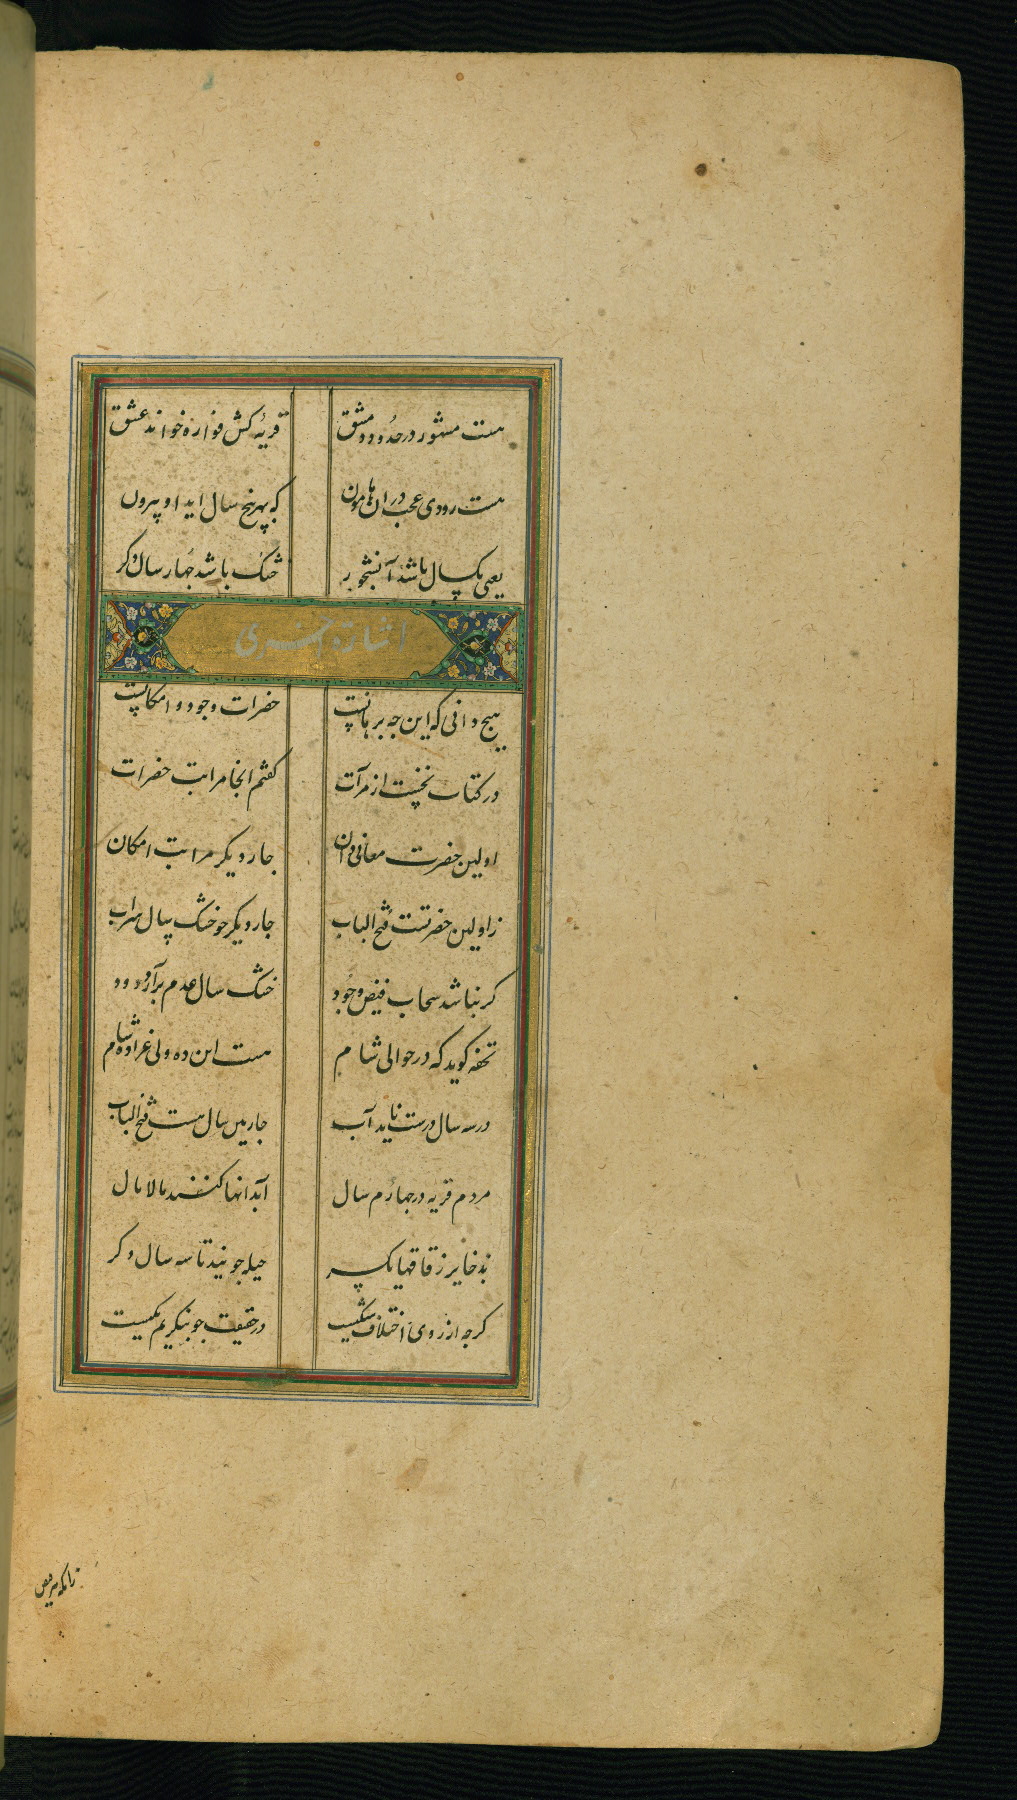 هست مشهور در حدود دمشق قریهٔ کش فواره خواند عشق
هست رودی عجب در ان هامون که بهر پنج سال اید او بیرون
یعنی یکسال باشد آبشخور خشک باشد چهار سال دکر
اشارة
هیچ دانی که این چه برهانست حضرات وجود و امکانست
در کتاب نخست از مرآت کفتم انجا مراتب حضرات
اولین حضرت معانی دان چار دیکر مراتب امکان
ز اولین حضرتست فتح الباب چار دیکر چو خشک سال سراب
کر نباشد سحاب فیض وجود خشک سال عدم برآرد دود
تحفه کوید که در حوالی شام هست این ده ولی
در سه سال درست ناید آب چارمین سال هست فتح الباب
مردم قریه در چهارم سال آبدانها کنند مالامال
بذخایر ز قاقها یکسر حیله جویند تا سه سال دکر
کرچه از روی اختلاف شکیست در حقیقت چو بنکریم یکیست
زانکه هر فیض